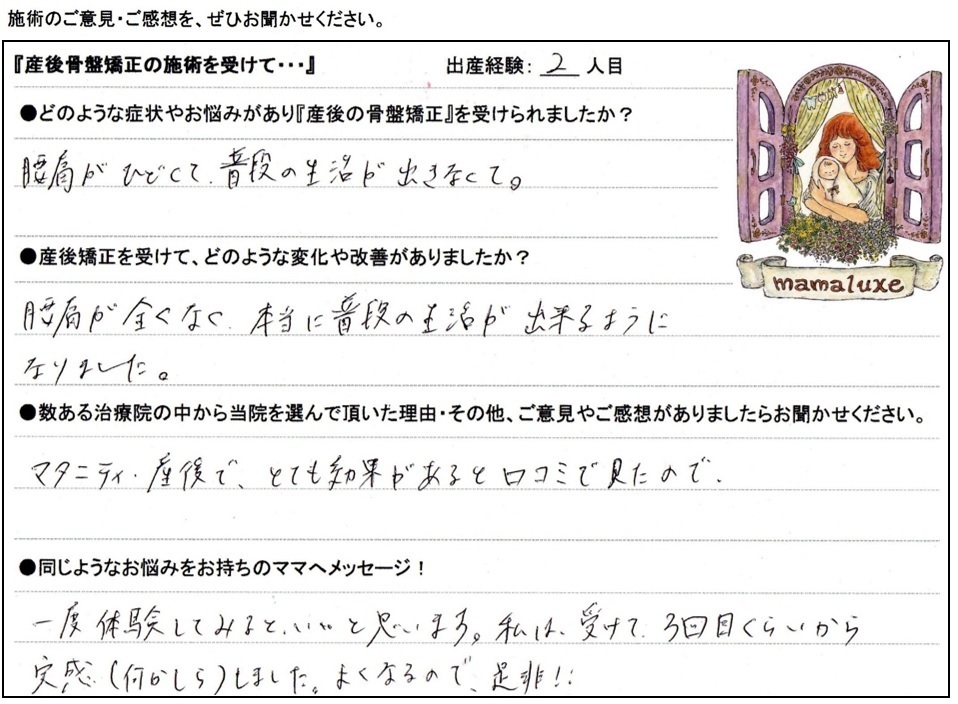 施術のご意見・ご感想を、ぜひお聞かせください。
『産後骨盤矯正の施術を受けて・・・』 出産経験： 2 人目
●どのような症状やお悩みがあり『産後の骨盤矯正』を受けられましたか？
腰痛がひどくて、普段の生活が出きなくて。
●産後矯正を受けて、どのような変化や改善がありましたか？
腰痛が全くなく、本当に普段の生活が出来るように
なりました。
mamaluxe
●数ある治療院の中から当院を選んで頂いた理由・その他、ご意見やご感想がありましたらお聞かせください。
マタニティ・産後で、とても効果があると口コミで見たので、
●同じようなお悩みをお持ちのママへメッセージ！
一度体験してみると、いいと思います。私は、受けて、3回目くらいから
実感（何かしら）しました。よくなるので、是非!!